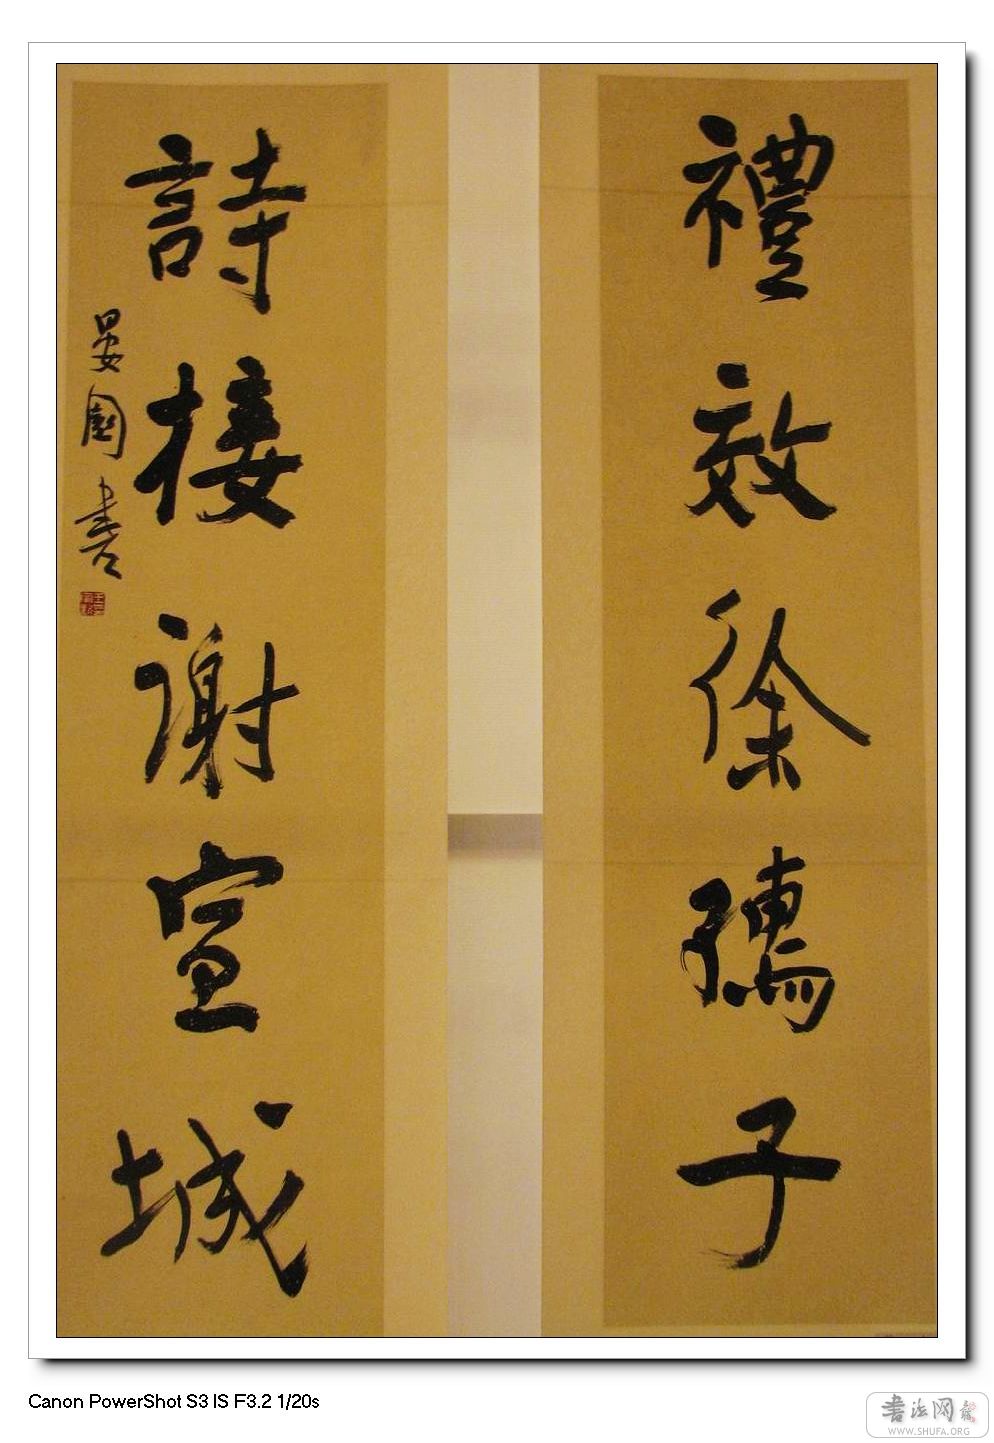 禮效徐孺子
詩接謝宣城
晏書
Canon PowerShot S3 IS F3.2 1/20s
书法网
WWW.SHUFA.ORG